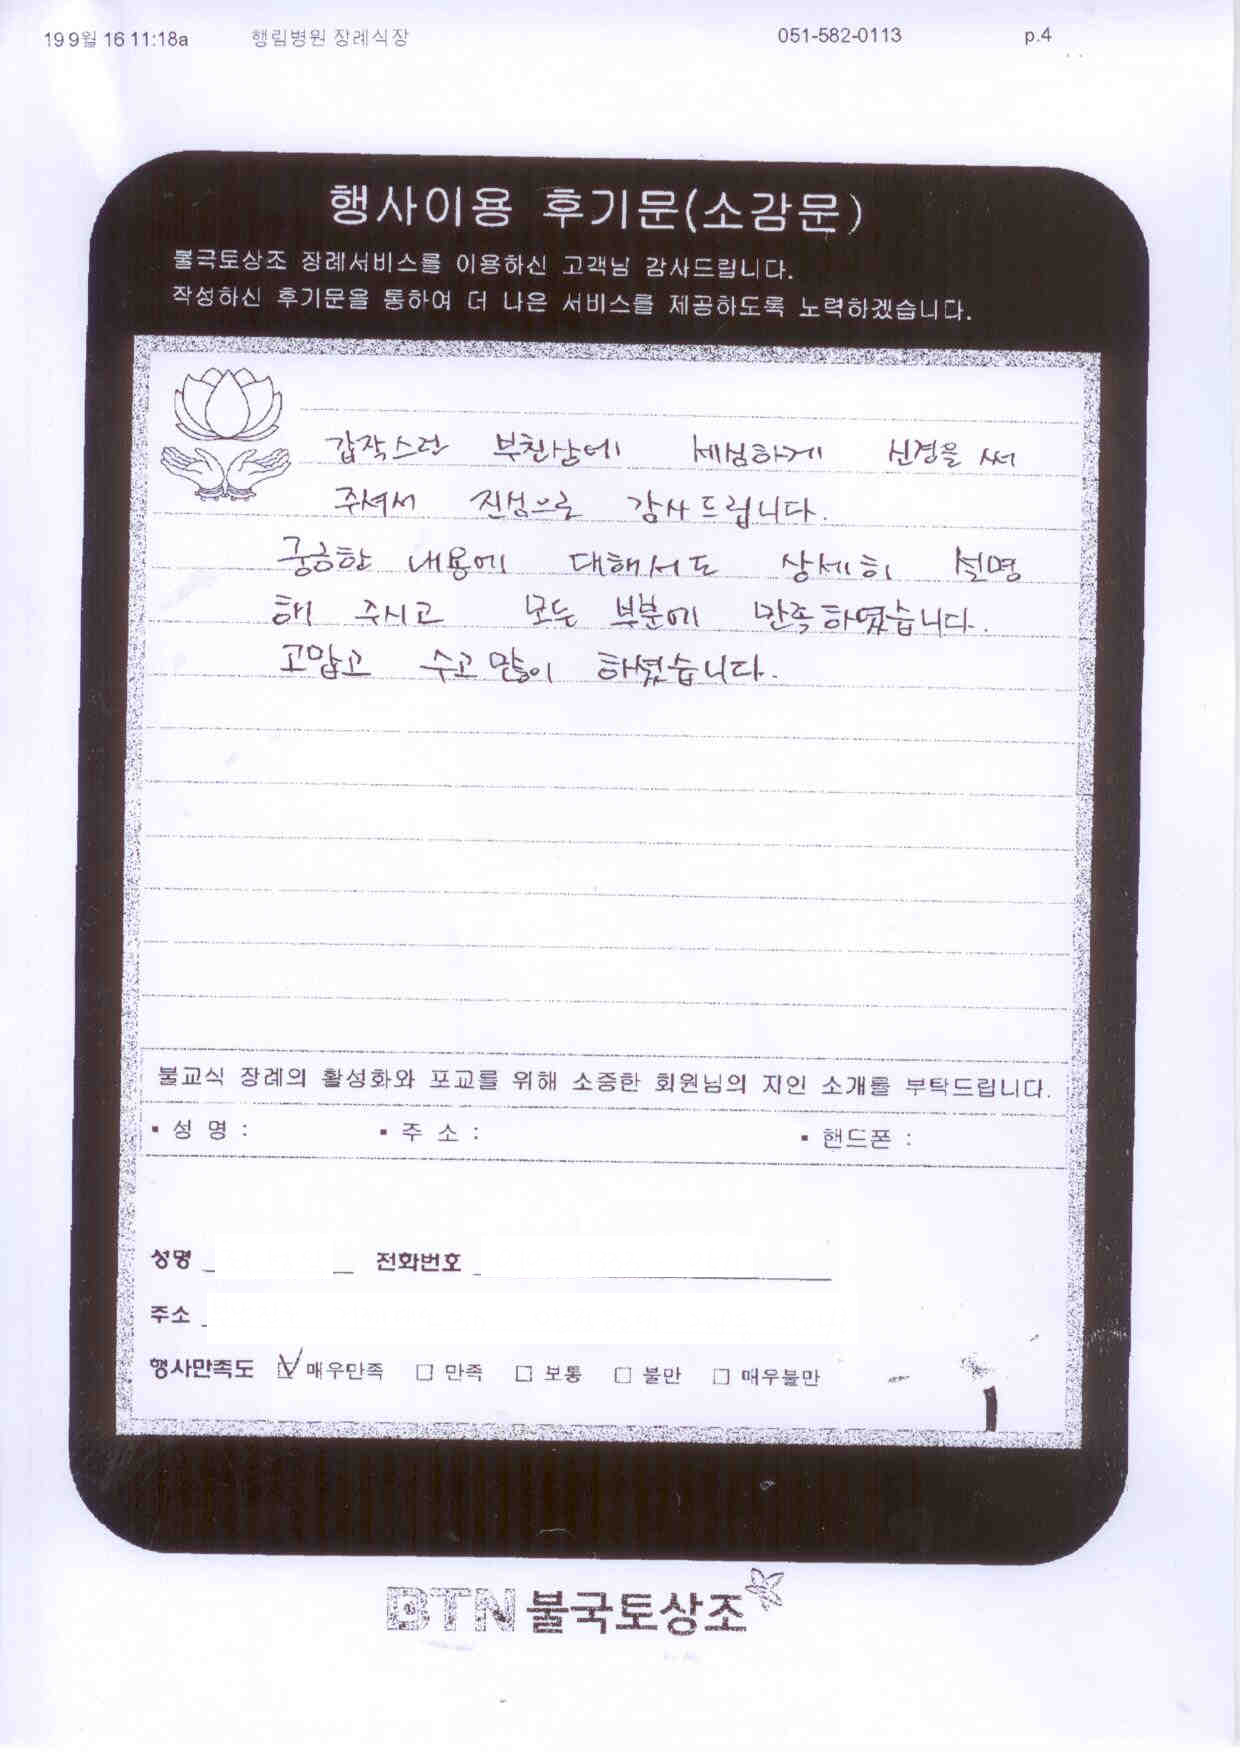 19 9월 16 11:18a 행림병원 장례식장 051-582-0113 p.4
행사이용 후기문(소감문)
불국토상조 장례서비스를 이용하신 고객님 감사드립니다.
작성하신 후기문을 통하여 더 나은 서비스를 제공하도록 노력하겠습니다.
갑작스런 부친상에 세심하게 신경을 써
주셔서 진심으로 감사드립니다.
궁금한 내용에 대해서도 상세히 설명
해 주시고 모든 부분에 만족하였습니다.
고맙고 수고 많이 하셨습니다.
불교식 장례의 활성화와 포교를 위해 소중한 회원님의 지인 소개를 부탁드립니다.
▪ 성 명 : ▪ 주 소 : ▪ 핸드폰 :
성명 전화번호
주소
행사만족도 ☑ 매우만족 □ 만족 □ 보통 □ 불만 □ 매우불만
BTN 불국토상조